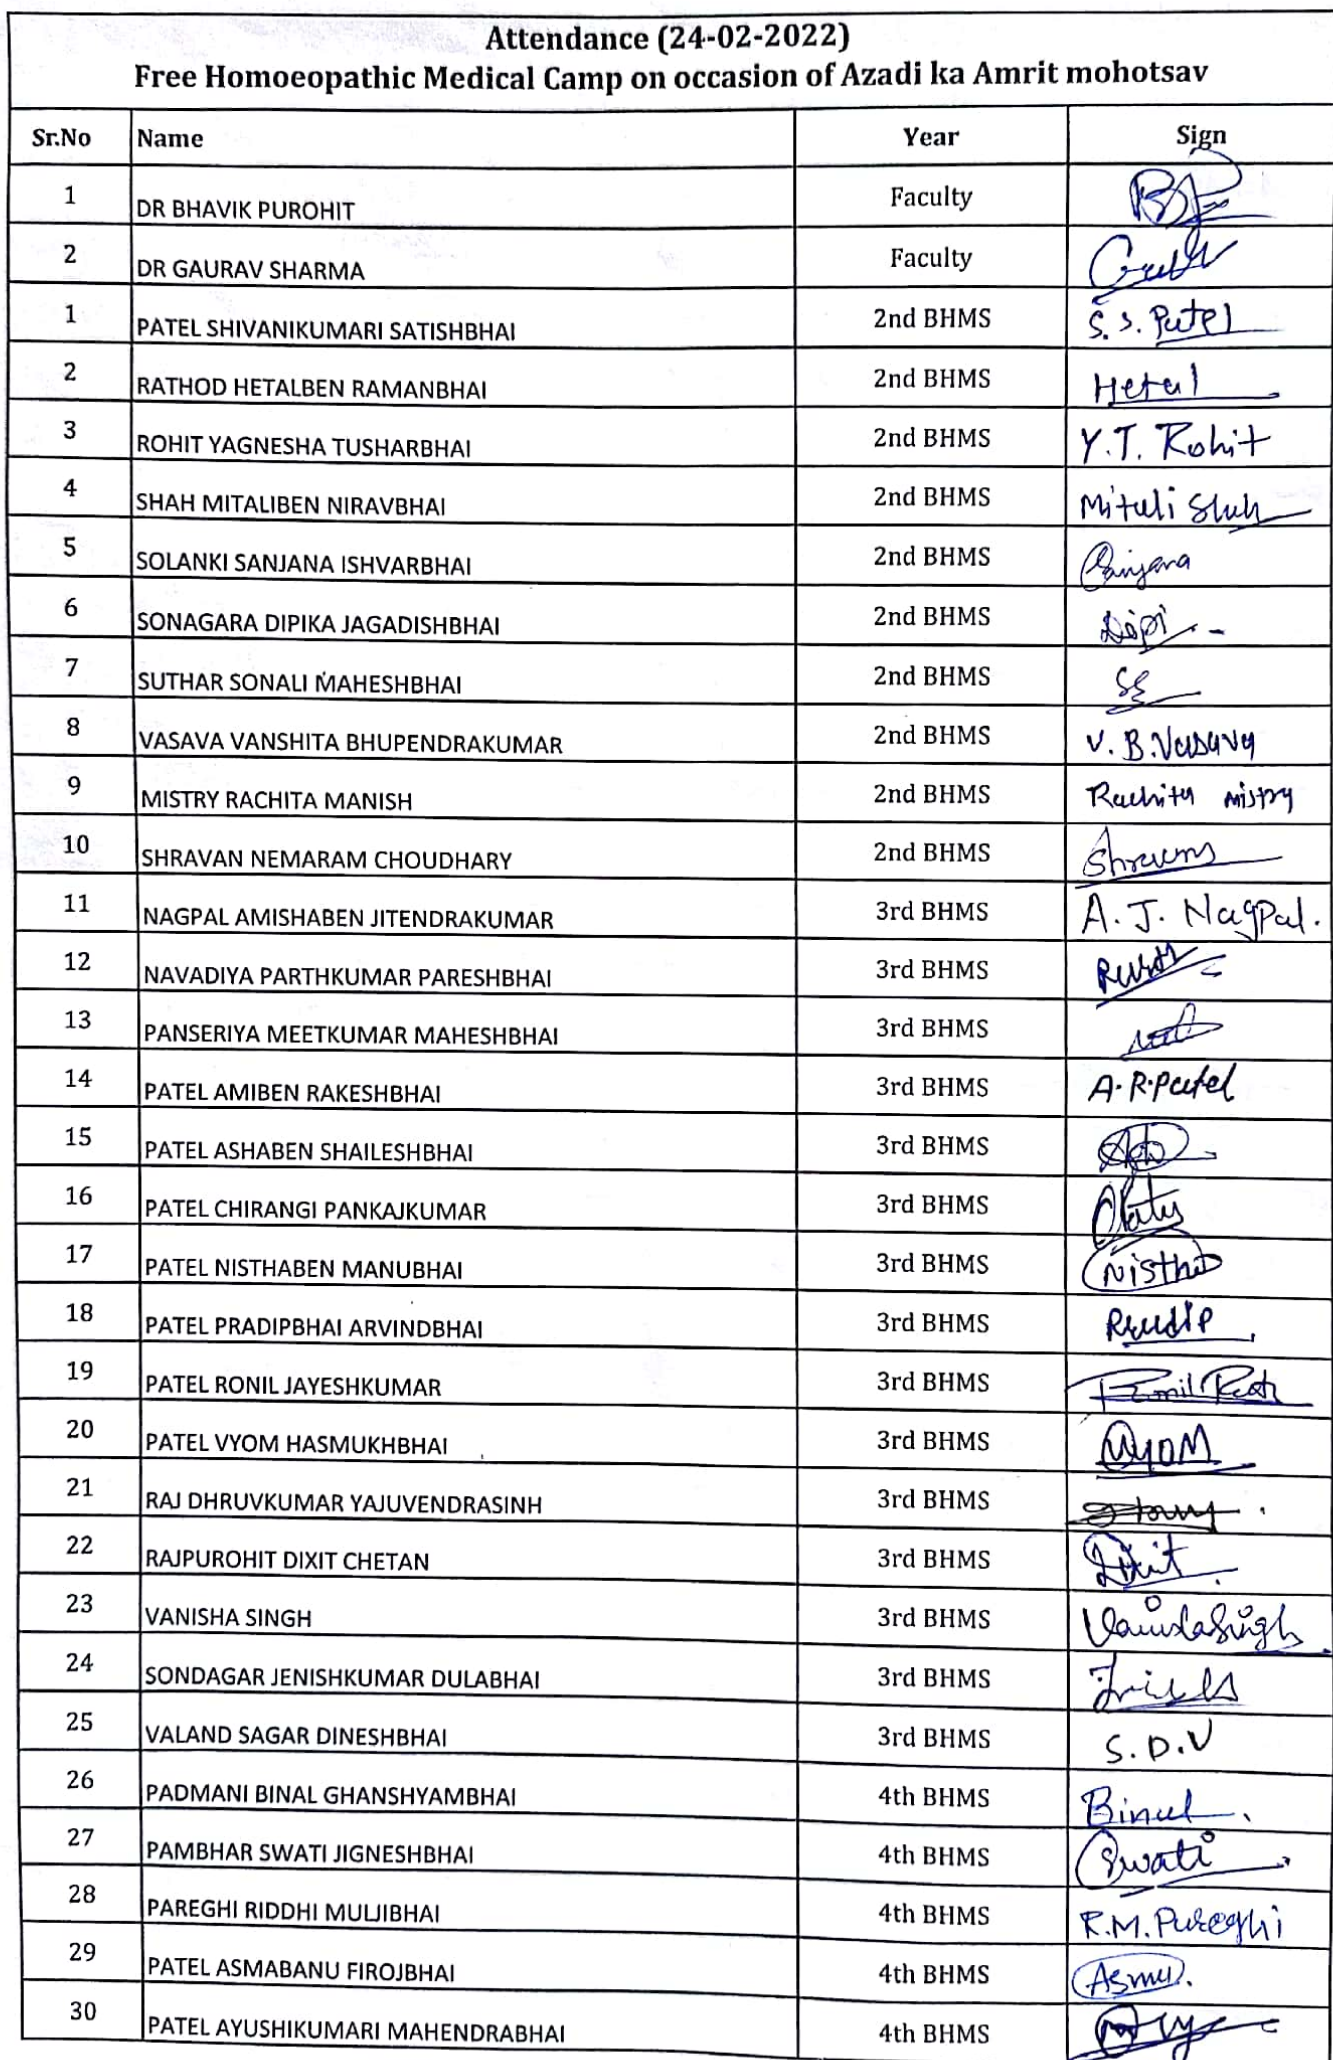 Attendance (24-02-2022)
Free Homoeopathic Medical Camp on occasion of Azadi ka Amrit mohotsav
Sr.No Name Year Sign
1 DR BHAVIK PUROHIT Faculty
2 DR GAURAV SHARMA Faculty
1 PATEL SHIVANIKUMARI SATISHBHAI 2nd BHMS S. S. Patel
2 RATHOD HETALBEN RAMANBHAI 2nd BHMS Hetal
3 ROHIT YAGNESHA TUSHARBHAI 2nd BHMS Y.T. Rohit
4 SHAH MITALIBEN NIRAVBHAI 2nd BHMS Mitali Shah
5 SOLANKI SANJANA ISHVARBHAI 2nd BHMS Sanjana
6 SONAGARA DIPIKA JAGADISHBHAI 2nd BHMS Dipi
7 SUTHAR SONALI MAHESHBHAI 2nd BHMS SS
8 VASAVA VANSHITA BHUPENDRAKUMAR 2nd BHMS V. B. Vasava
9 MISTRY RACHITA MANISH 2nd BHMS Rachita mistry
10 SHRAVAN NEMARAM CHOUDHARY 2nd BHMS
11 NAGPAL AMISHABEN JITENDRAKUMAR 3rd BHMS A. J. Nagpal.
12 NAVADIYA PARTHKUMAR PARESHBHAI 3rd BHMS
13 PANSERIYA MEETKUMAR MAHESHBHAI 3rd BHMS
14 PATEL AMIBEN RAKESHBHAI 3rd BHMS A. R. Patel
15 PATEL ASHABEN SHAILESHBHAI 3rd BHMS
16 PATEL CHIRANGI PANKAJKUMAR 3rd BHMS
17 PATEL NISTHABEN MANUBHAI 3rd BHMS Nistha
18 PATEL PRADIPBHAI ARVINDBHAI 3rd BHMS Pradip
19 PATEL RONIL JAYESHKUMAR 3rd BHMS
20 PATEL VYOM HASMUKHBHAI 3rd BHMS VyOM
21 RAJ DHRUVKUMAR YAJUVENDRASINH 3rd BHMS
22 RAJPUROHIT DIXIT CHETAN 3rd BHMS Dixit
23 VANISHA SINGH 3rd BHMS Vanisha Singh
24 SONDAGAR JENISHKUMAR DULABHAI 3rd BHMS
25 VALAND SAGAR DINESHBHAI 3rd BHMS S. D. V
26 PADMANI BINAL GHANSHYAMBHAI 4th BHMS Binal
27 PAMBHAR SWATI JIGNESHBHAI 4th BHMS Swati
28 PAREGHI RIDDHI MULJIBHAI 4th BHMS R.M. Pareghi
29 PATEL ASMABANU FIROJBHAI 4th BHMS Asma.
30 PATEL AYUSHIKUMARI MAHENDRABHAI 4th BHMS